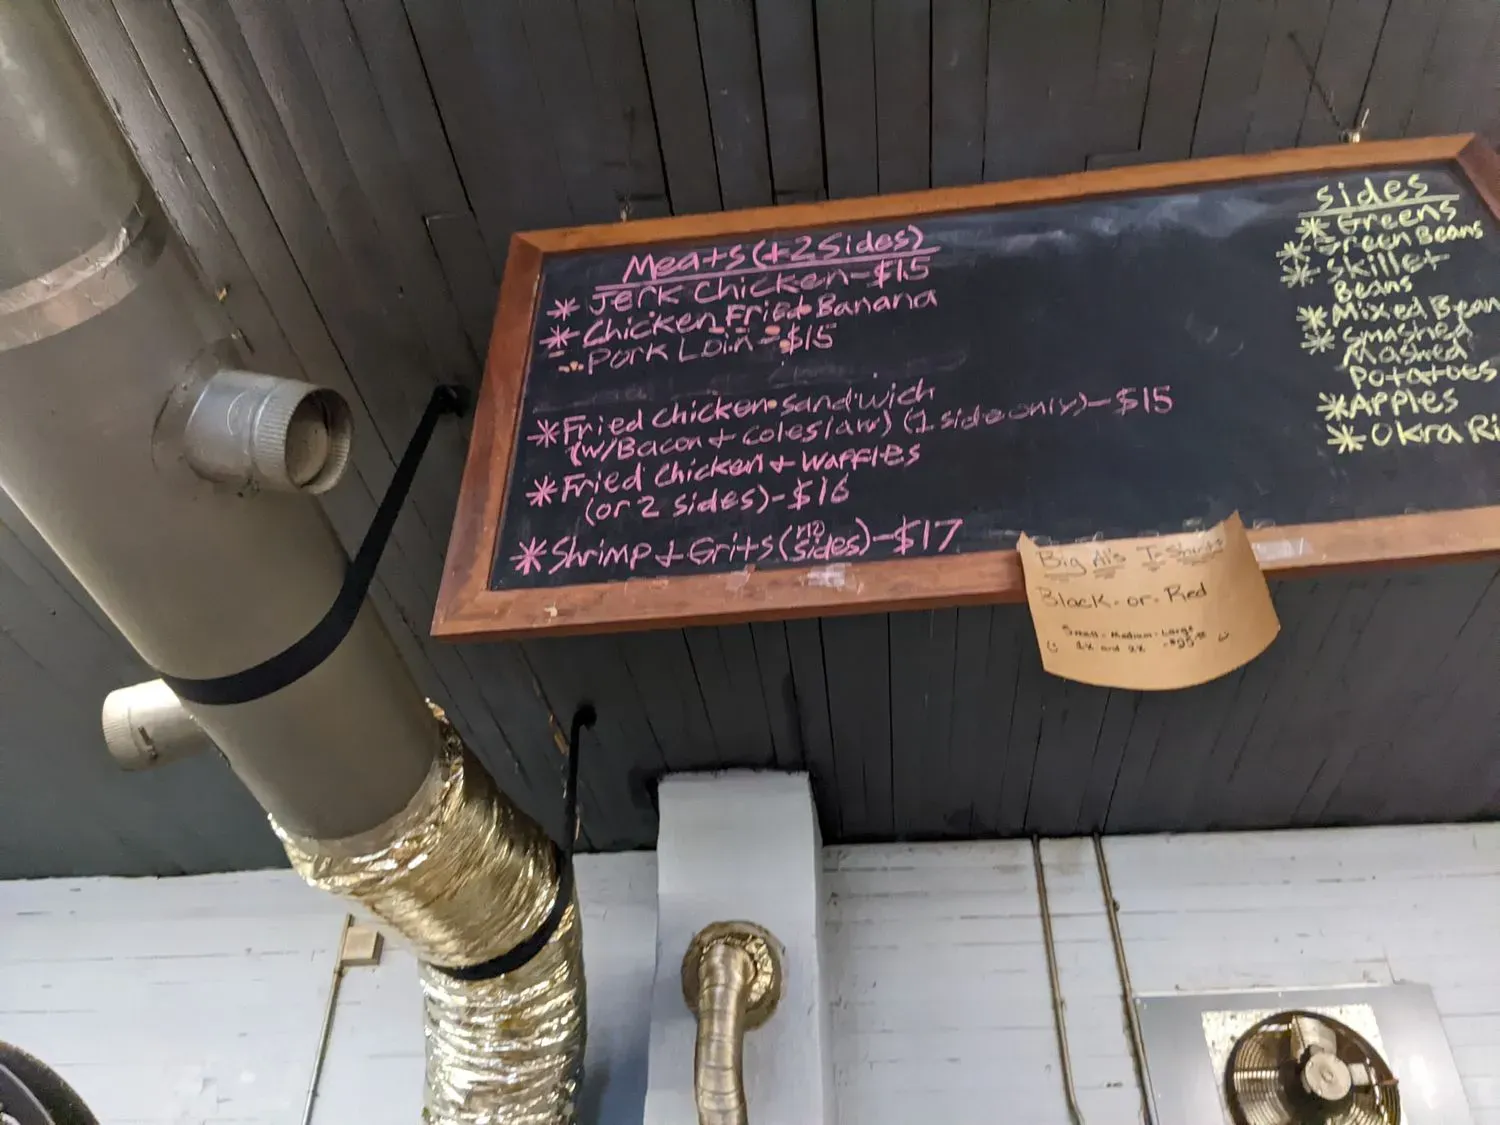 Meats (+2 sides)
* Jerk Chicken - $15
* Chicken Fried Banana
- Pork Loin - $15
* Fried Chicken Sandwich
(w/Bacon + coleslaw) (1 side only) - $15
* Fried Chicken + Waffles
(or 2 sides) - $16
* Shrimp + Grits (no sides) - $17
sides
* Greens
* Green Beans
* Skillet
Beans
* Mixed Bean
* Smashed
Mashed
Potatoes
* Apples
* Okra Ri
Big Al's T-Shirts
Black-or-Red
Small-Medium-Large
1x and 2x - $25